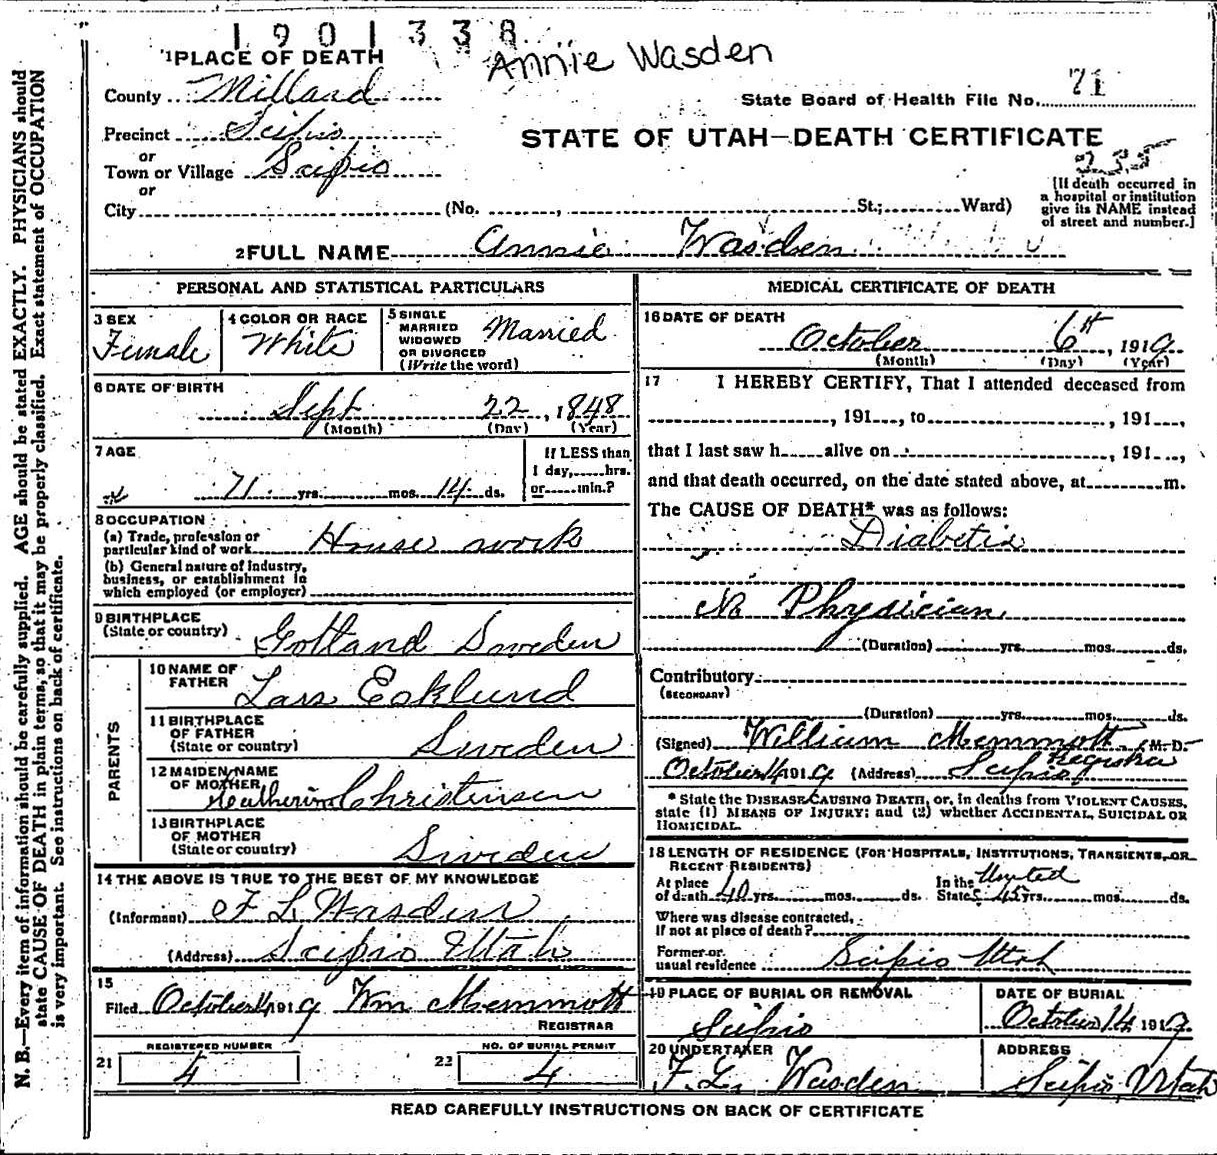 1901338
Annie Wasden
1 PLACE OF DEATH
County Millard
State Board of Health File No. 71
Precinct Scipio
STATE OF UTAH—DEATH CERTIFICATE
or
Town or Village Scipio
235
or
City (No. , St.; Ward)
[If death occurred in
a hospital or institution
give its NAME instead
of street and number.]
2 FULL NAME Annie Wasden
PERSONAL AND STATISTICAL PARTICULARS
3 SEX
Female
4 COLOR OR RACE
White
5 SINGLE
MARRIED
WIDOWED
OR DIVORCED
(Write the word)
Married
6 DATE OF BIRTH
Sept 22, 1848
(Month) (Day) (Year)
7 AGE
71 yrs. mos. 14 ds.
If LESS than
1 day, hrs.
or min.?
8 OCCUPATION
(a) Trade, profession or
particular kind of work House work
(b) General nature of industry,
business, or establishment in
which employed (or employer)
9 BIRTHPLACE
(State or country) Gotland Sweden
PARENTS
10 NAME OF
FATHER Lars Esklund
11 BIRTHPLACE
OF FATHER
(State or country) Sweden
12 MAIDEN NAME
OF MOTHER Christensen
13 BIRTHPLACE
OF MOTHER
(State or country) Sweden
14 THE ABOVE IS TRUE TO THE BEST OF MY KNOWLEDGE
(Informant) F L Wasden
(Address) Scipio Utah
15
Filed October 14 1919 Wm Memmott
REGISTRAR
REGISTERED NUMBER
21 4
NO. OF BURIAL PERMIT
22 4
MEDICAL CERTIFICATE OF DEATH
16 DATE OF DEATH
October 6th, 1919
(Month) (Day) (Year)
17 I HEREBY CERTIFY, That I attended deceased from
, 191 , to , 191 ,
that I last saw h alive on , 191 ,
and that death occurred, on the date stated above, at m.
The CAUSE OF DEATH* was as follows:
Diabetis
No Phrysician
(Duration) yrs. mos. ds.
Contributory
(SECONDARY)
(Duration) yrs. mos. ds.
(Signed) William Memmott, M.D.
Registrar
October 14 1919 (Address) Scipio
* State the DISEASE CAUSING DEATH, or, in deaths from VIOLENT CAUSES,
state (1) MEANS OF INJURY; and (2) whether ACCIDENTAL, SUICIDAL OR
HOMICIDAL.
18 LENGTH OF RESIDENCE (FOR HOSPITALS, INSTITUTIONS, TRANSIENTS, OR
RECENT RESIDENTS)
At place
of death 40 yrs. mos. ds.
In the United
States 45 yrs. mos. ds.
Where was disease contracted,
If not at place of death?
Former or
usual residence Scipio Utah
19 PLACE OF BURIAL OR REMOVAL
Scipio
DATE OF BURIAL
October 14 1919
20 UNDERTAKER
F. L. Wasden
ADDRESS
Scipio, Utah
READ CAREFULLY INSTRUCTIONS ON BACK OF CERTIFICATE
N. B.—Every item of information should be carefully supplied. AGE should be stated EXACTLY. PHYSICIANS should
state CAUSE OF DEATH in plain terms, so that it may be properly classified. Exact statement of OCCUPATION
is very important. See instructions on back of certificate.